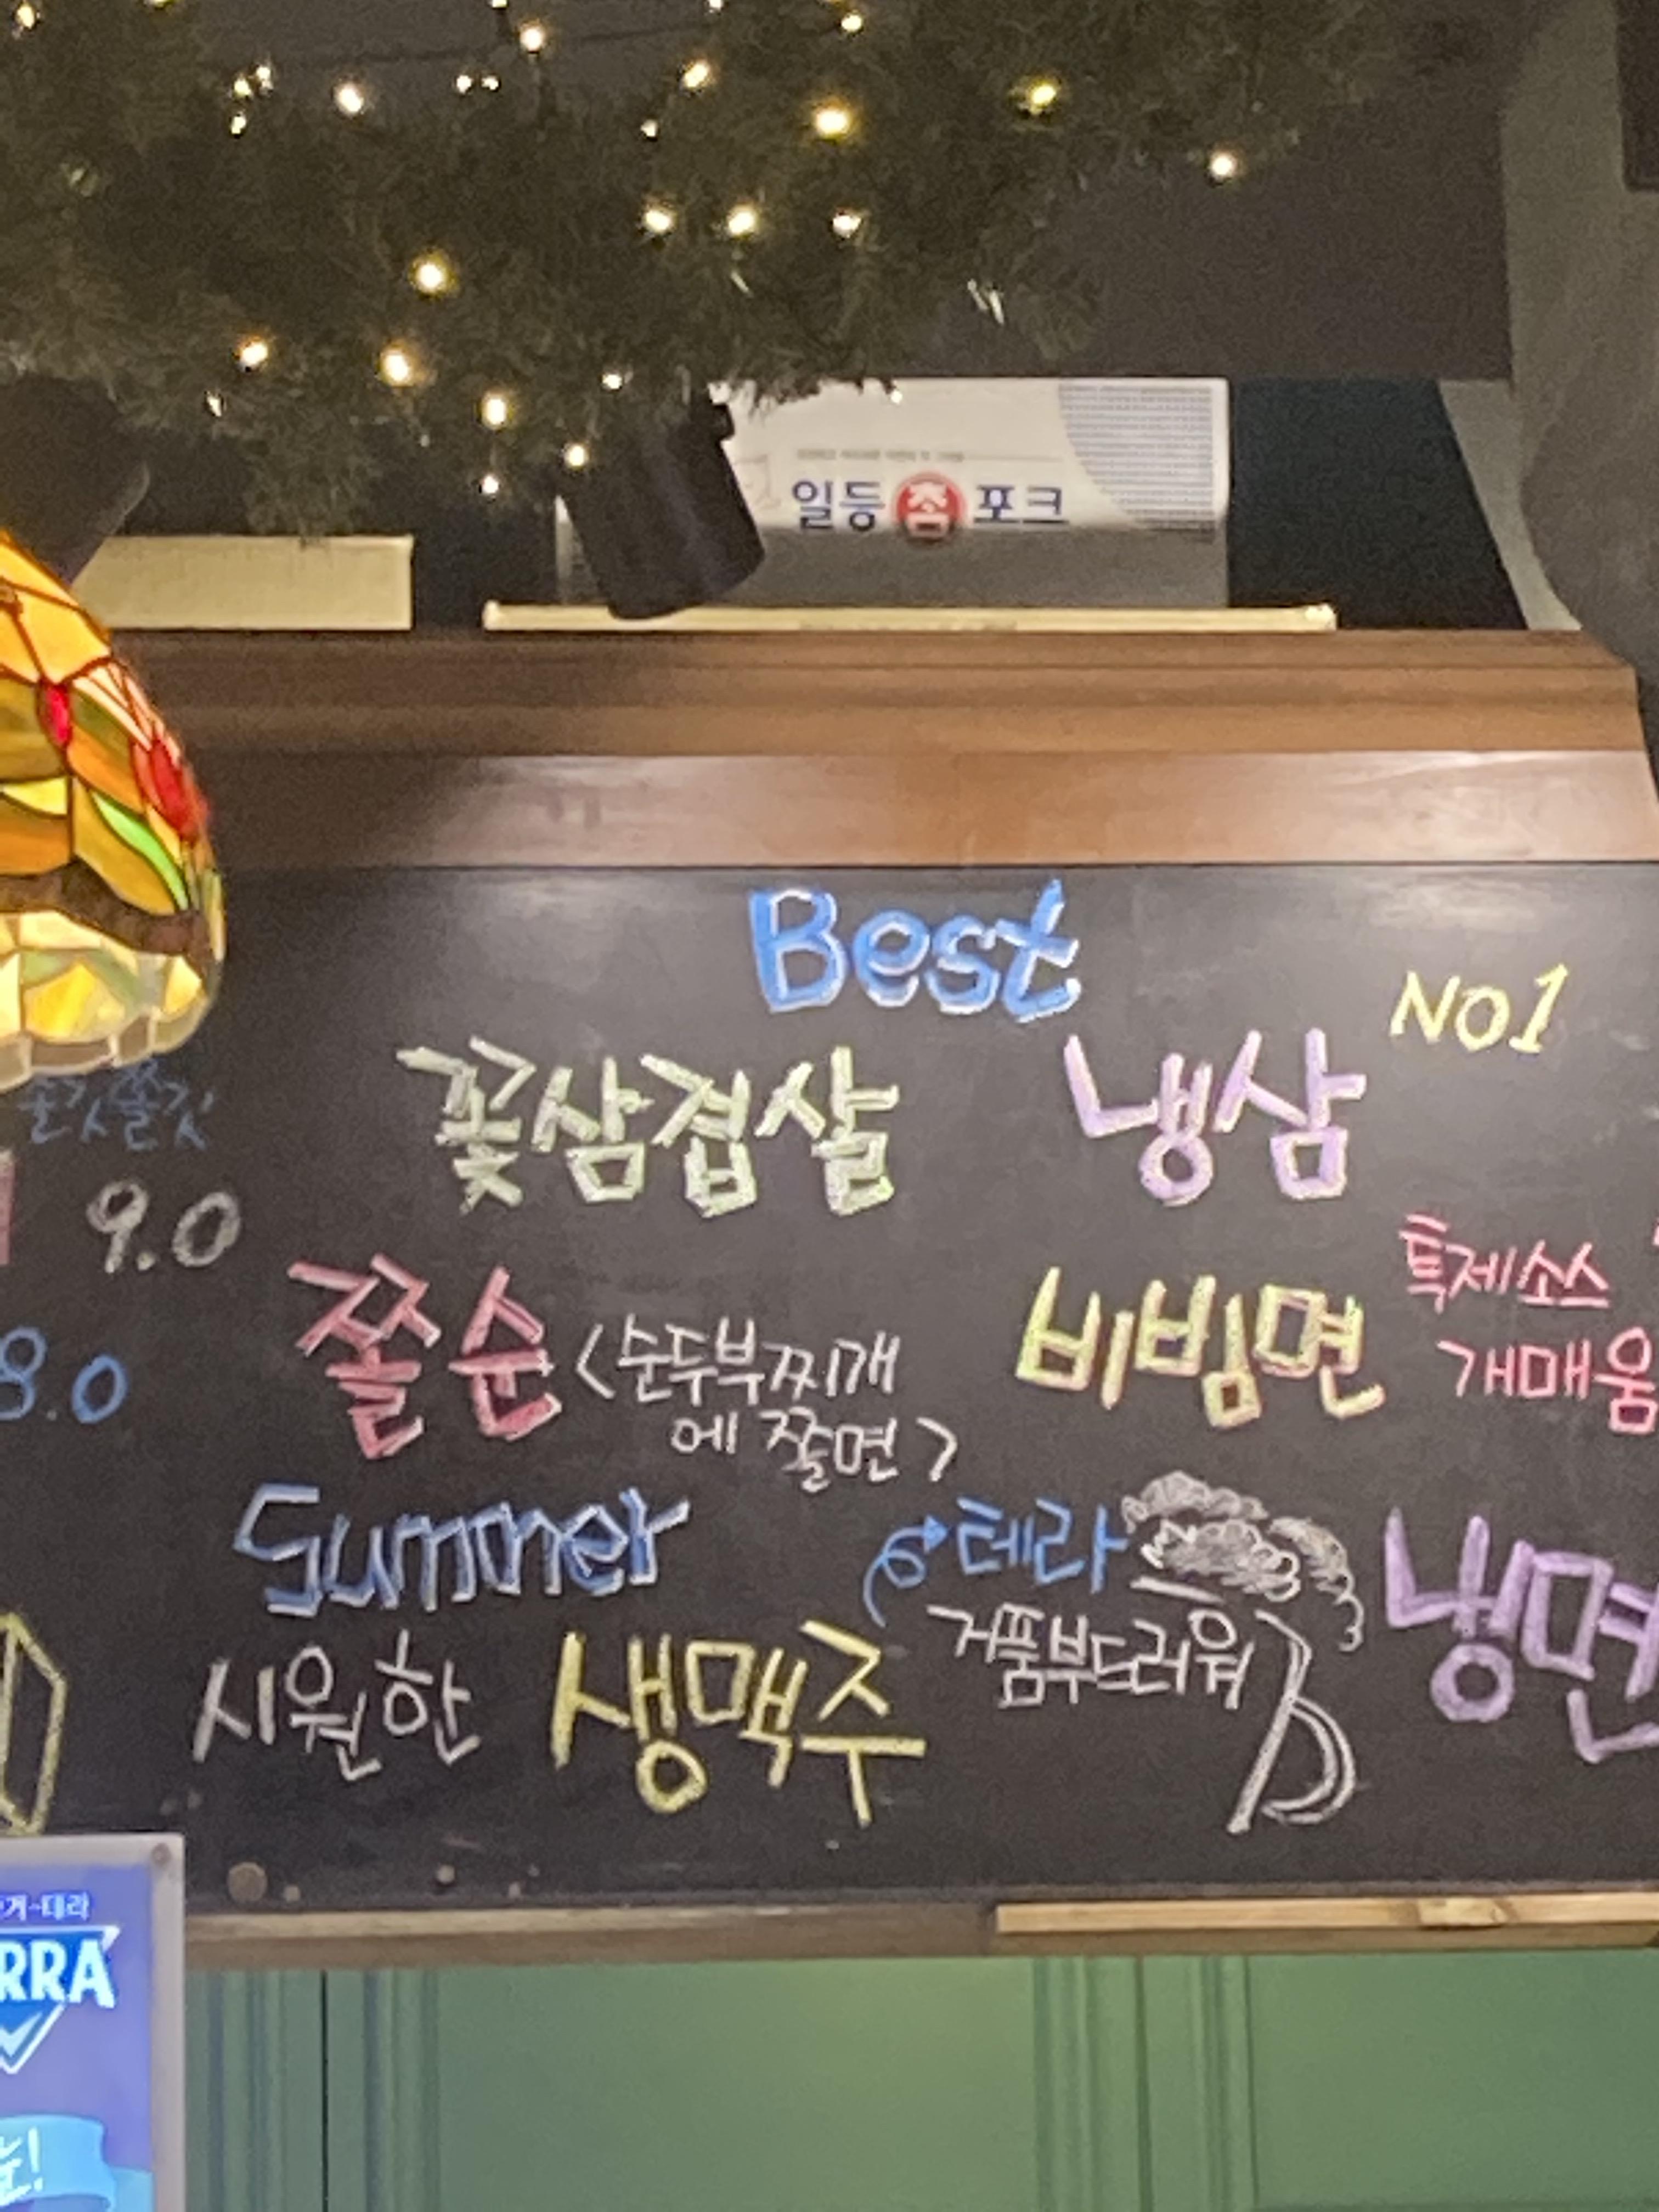 일등 좀 포크
Best
NO1
꽃삼겹살 냉삼
쫄깃쫄깃
9.0
쫄순 <순두부찌개
에 쫄면>
비빔면
특제소스
개매움
8.0
Summer
테라
거품부드러워
냉면
시원한 생맥주
거-테라
RRA